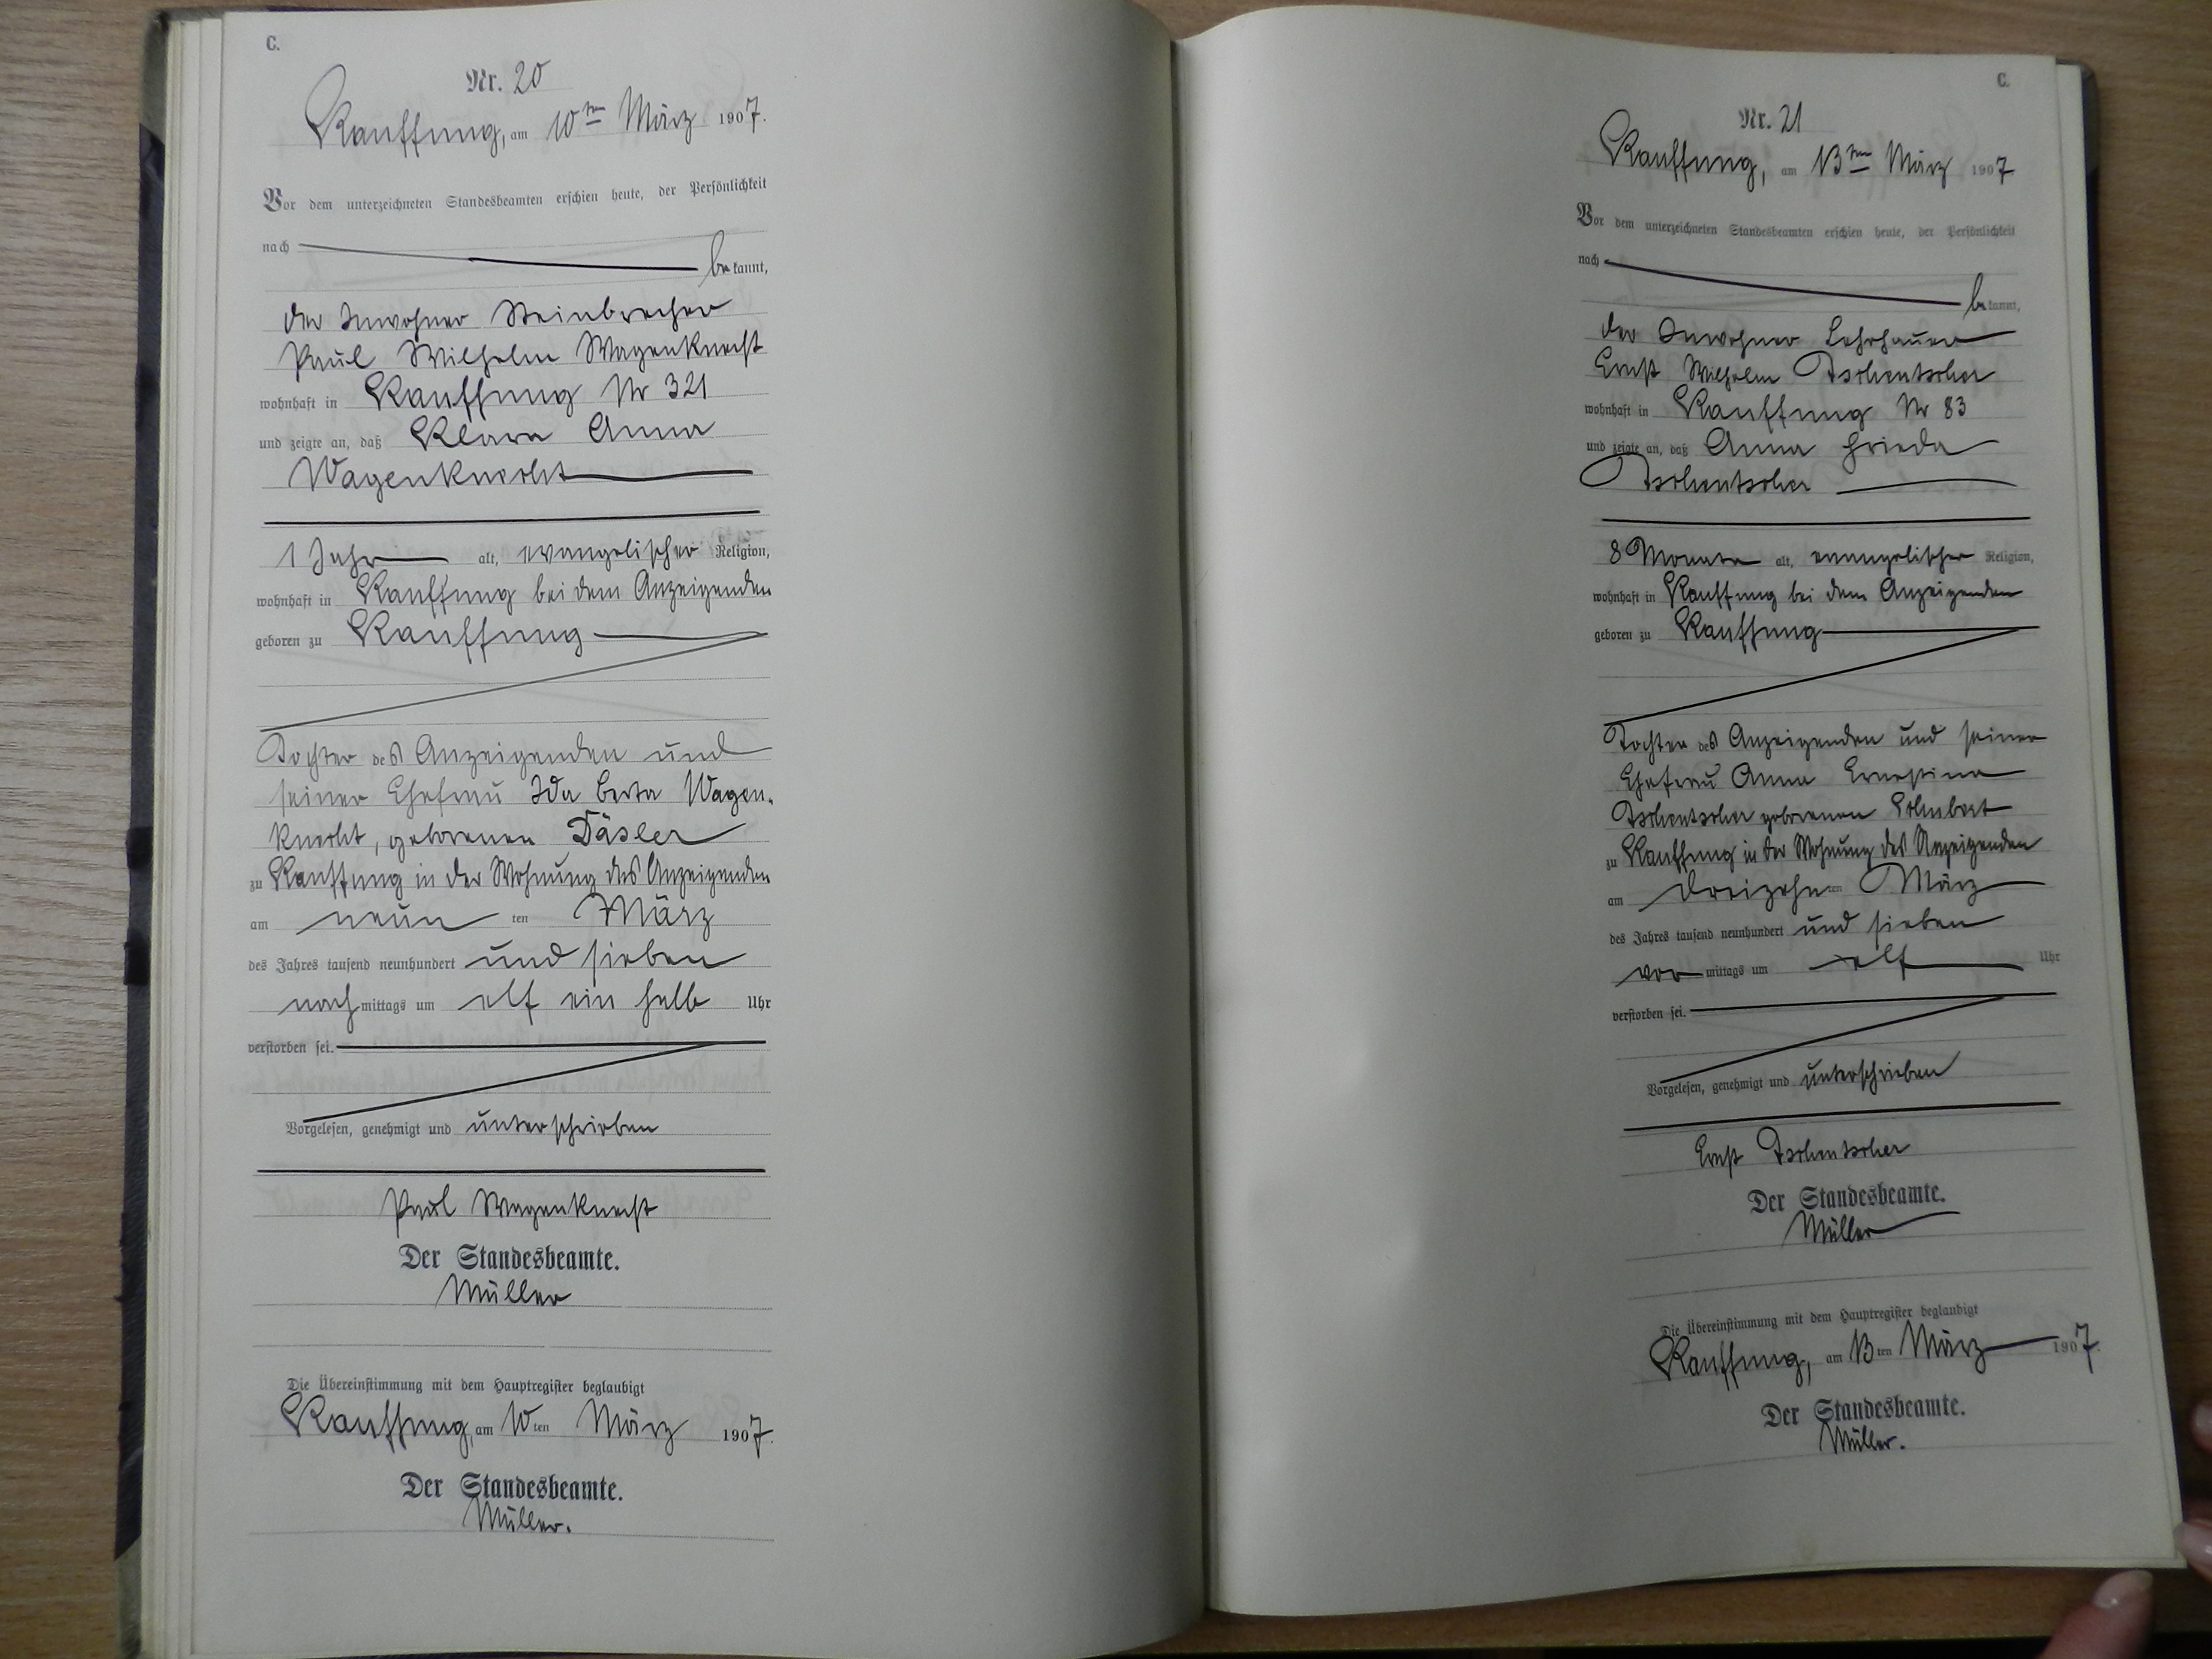 C.
Nr. 20
Kauffung, am 10ten März 1907.
Vor dem unterzeichneten Standesbeamten erschien heute, der Persönlichkeit
nach bekannt,
der Inwohner Steinbrecher
Paul Wilhelm Wagenknecht
wohnhaft in Kauffung Nr 321
und zeigte an, daß Klara Anna
Wagenknecht
1 Jahr alt, evangelischer Religion,
wohnhaft in Kauffung bei dem Anzeigenden
geboren zu Kauffung
Tochter des Anzeigenden und
seiner Ehefrau Ida Berta Wagen-
knecht, geborenen Däsler
zu Kauffung in der Wohnung des Anzeigenden
am neun ten März
des Jahres tausend neunhundert und sieben
nachmittags um elf ein halb Uhr
verstorben sei.
Vorgelesen, genehmigt und unterschrieben
Paul Wagenknecht
Der Standesbeamte.
Müller
Die Übereinstimmung mit dem Hauptregister beglaubigt
Kauffung, am 10ten März 1907.
Der Standesbeamte.
Müller.
C.
Nr. 21
Kauffung, am 13ten März 1907
Vor dem unterzeichneten Standesbeamten erschien heute, der Persönlichkeit
nach bekannt,
der Inwohner Lehrhauer
Ernst Wilhelm Tschentscher
wohnhaft in Kauffung Nr 83
und zeigte an, daß Anna Frieda
Tschentscher
8 Monate alt, evangelischer Religion,
wohnhaft in Kauffung bei dem Anzeigenden
geboren zu Kauffung
Tochter des Anzeigenden und seiner
Ehefrau Anna Ernestine
Tschentscher geborenen
zu Kauffung in der Wohnung des Anzeigenden
am dreizehnten März
des Jahres tausend neunhundert und sieben
vormittags um elf Uhr
verstorben sei.
Vorgelesen, genehmigt und unterschrieben
Ernst Tschentscher
Der Standesbeamte.
Müller
Die Übereinstimmung mit dem Hauptregister beglaubigt
Kauffung, am 13ten März 1907.
Der Standesbeamte.
Müller.